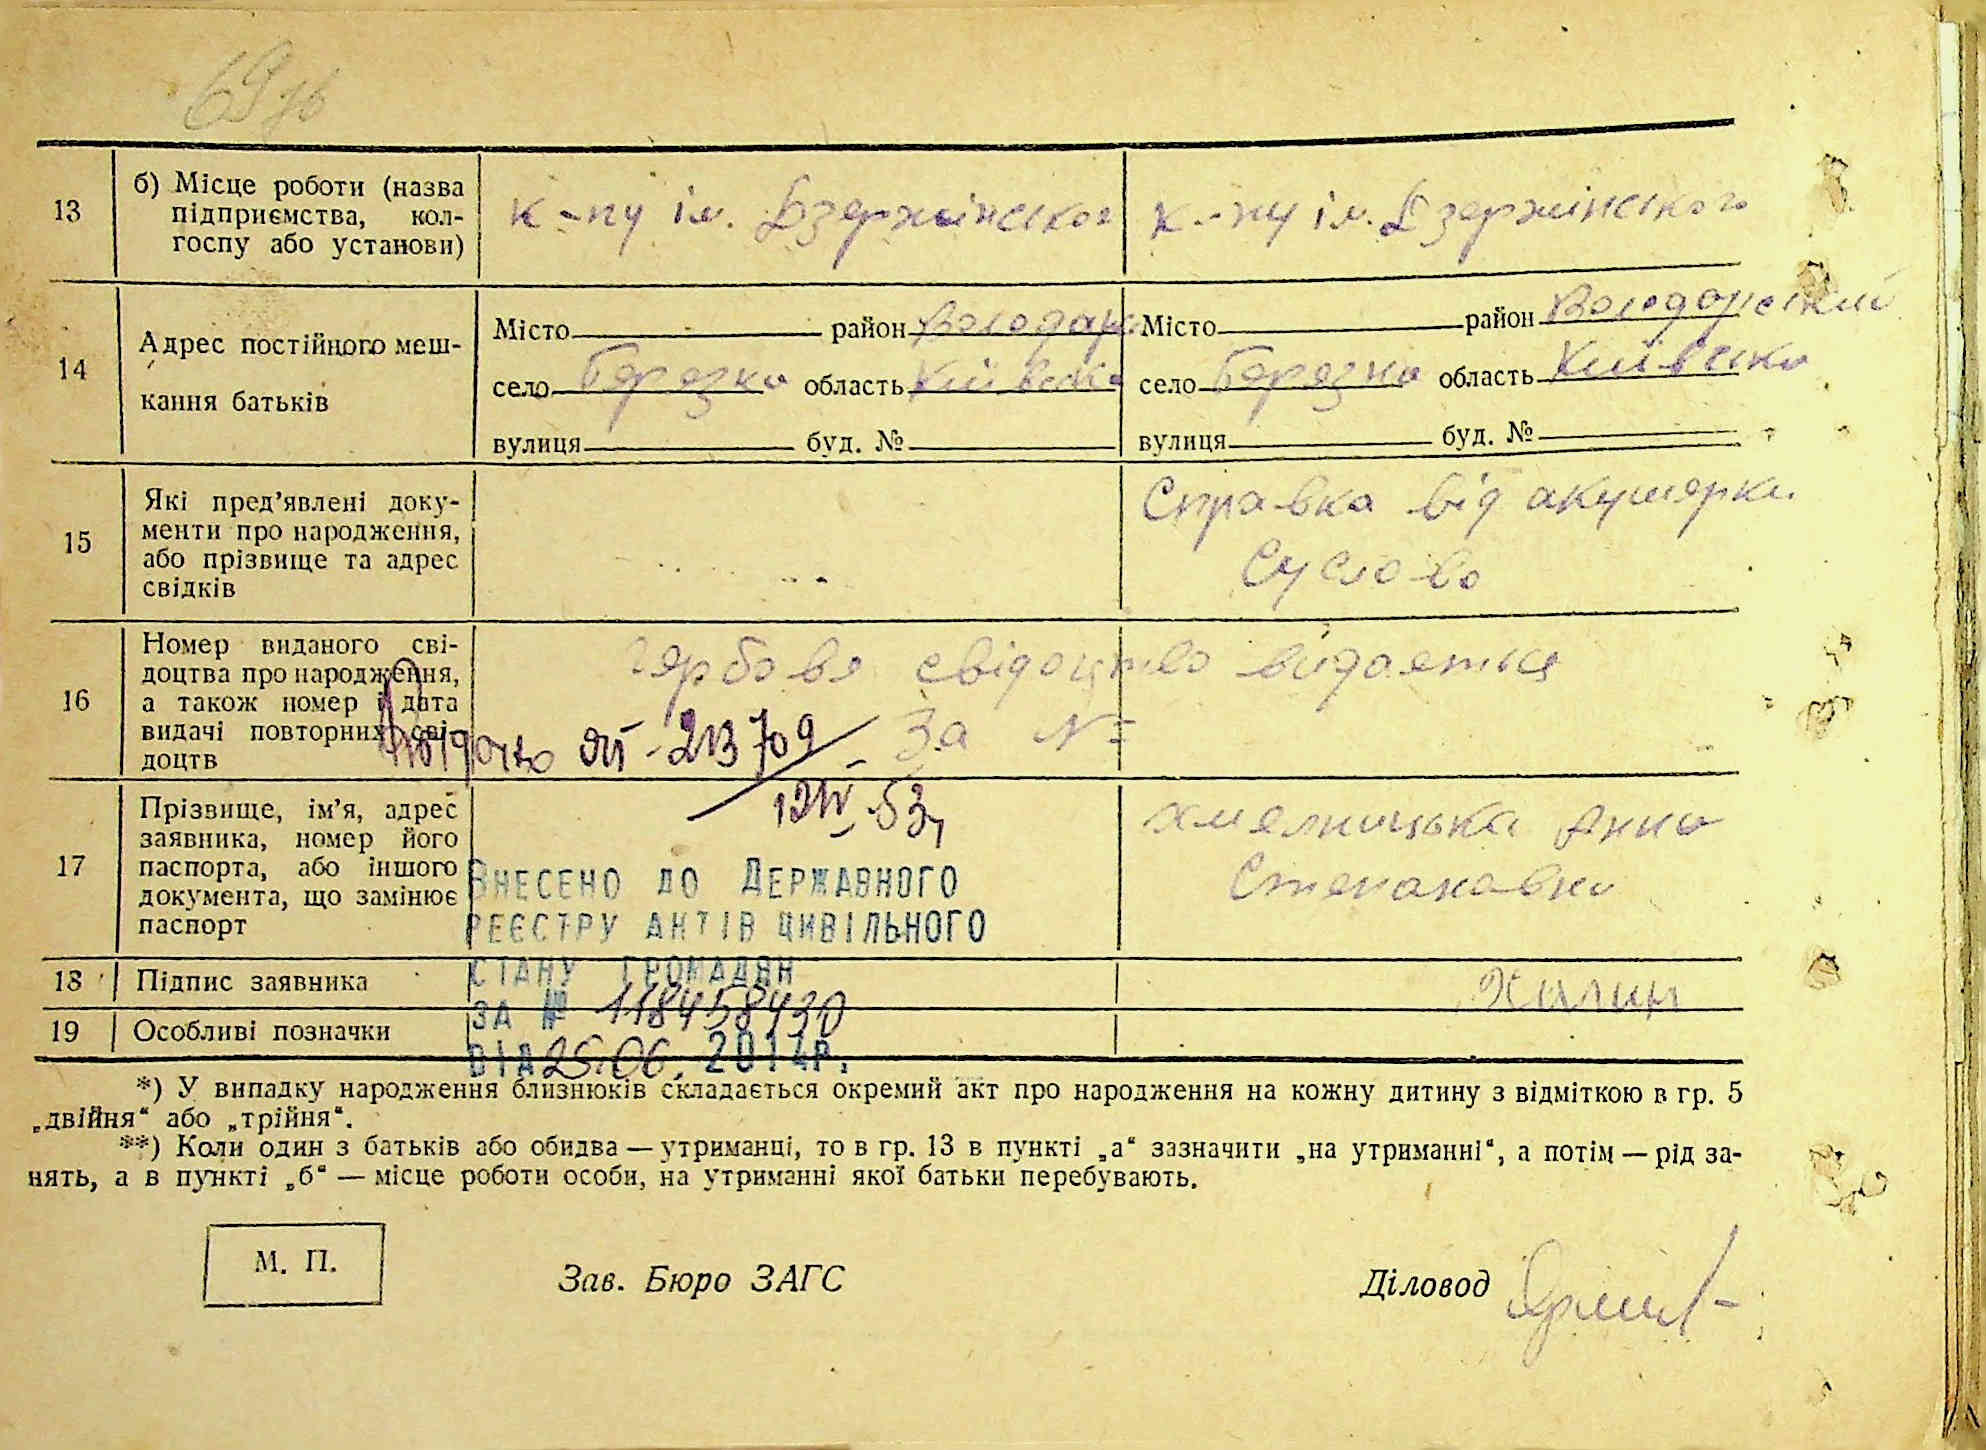 69зв
13
б) Місце роботи (назва
підприємства, кол-
госпу або установи)
к-пу ім. Дзержинського
к-пу ім. Дзержинського
14
Адрес постійного меш-
кання батьків
Місто район Володарс
село Березна область Київська
вулиця буд. №
Місто район Володарский
село Березна область Київська
вулиця буд. №
15
Які пред’явлені доку-
менти про народження,
або прізвище та адрес
свідків
Справка від акушерки
Суслово
16
Номер виданого сві-
доцтва про народження,
а також номер і дата
видачі повторних сві-
доцтв
гербове свідоцтво видаеться
за №
213709
53
17
Прізвище, ім’я, адрес
заявника, номер його
паспорта, або іншого
документа, що замінює
паспорт
Хмелницька Анна
Степанавна
Внесено до Державного
реєстру актів цивільного
стану громадян
за № 118458430
від 25.06.2014р.
18
Підпис заявника
19
Особливі позначки
*) У випадку народження близнюків складається окремий акт про народження на кожну дитину з відміткою в гр. 5
„двійня“ або „трійня“.
**) Коли один з батьків або обидва — утриманці, то в гр. 13 в пункті „а“ зазначити „на утриманні“, а потім — рід за-
нять, а в пункті „б“ — місце роботи особи, на утриманні якої батьки перебувають.
М. П.
Зав. Бюро ЗАГС
Діловод